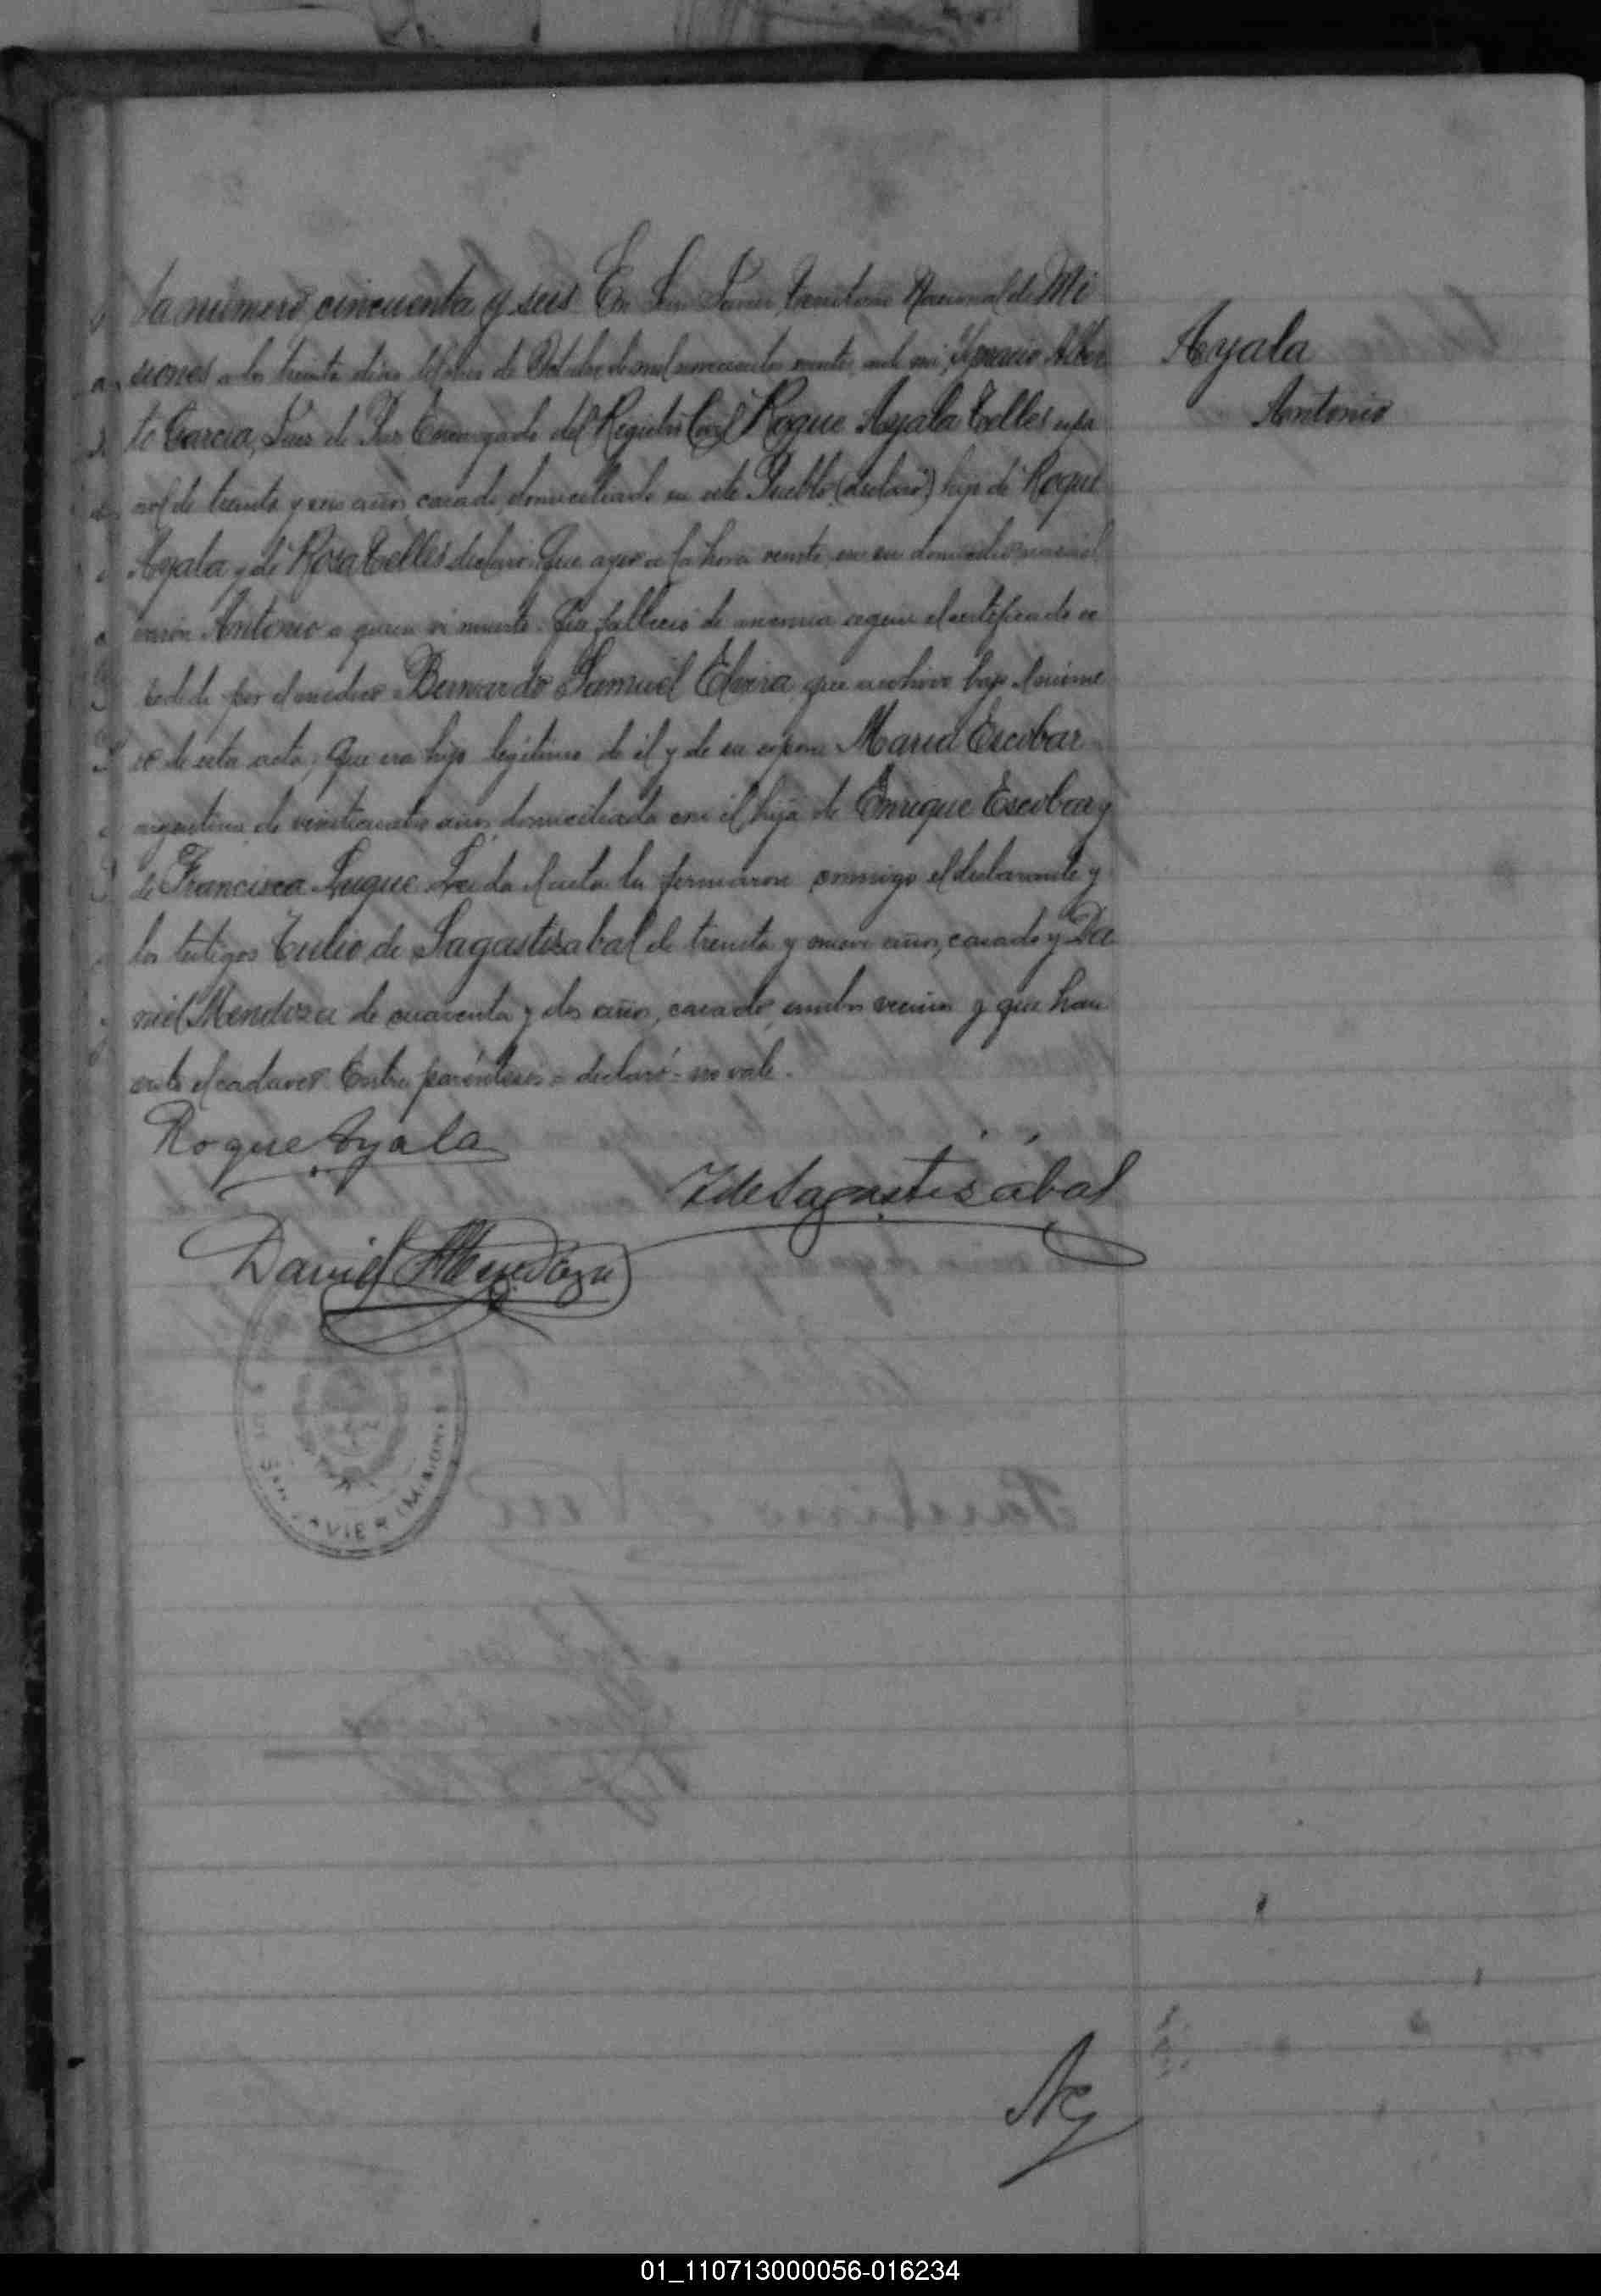 ta número cincuenta y seis En San Javier Territorio Nacional de Mi
siones a los treinta dias del mes de Octubre de mil novecientos veinte, ante mi, Ignacio Alber
to Garcia, Juez de Paz Encargado del Registro Civil Roque Ayala Telles espa
ñol de treinta y seis años casado, domiciliado en este Pueblo (declaró) hijo de Roque
Ayala y de Rosa Telles declaró: Que ayer a la hora veinte en su domicilio
varón Antonio a quien vi muerto. Que falleció de anemia segun el certificado es
pedido por el medico Bernardo Samuel que archivo bajo el núme
ro de esta acta; Que era hijo legitimo de él y de su esposa Maria Escobar
argentina de veinticuatro años domiciliada con él hija de Enrique Escobar y
de Francisca Luque Leida el acta la firmaron conmigo el declarante y
los testigos Tulio de Sagastizabal de treinta y nueve años, casado y Da
niel Mendoza de cuarenta y dos años, casado, ambos vecinos y que han
visto el cadaver. Entre paréntesis = declaró - no vale.
Roque Ayala
T de Sagastizábal
Daniel Mendoza
SAN JAVIER (MISIONES)
Ayala
Antonio
01_110713000056-016234